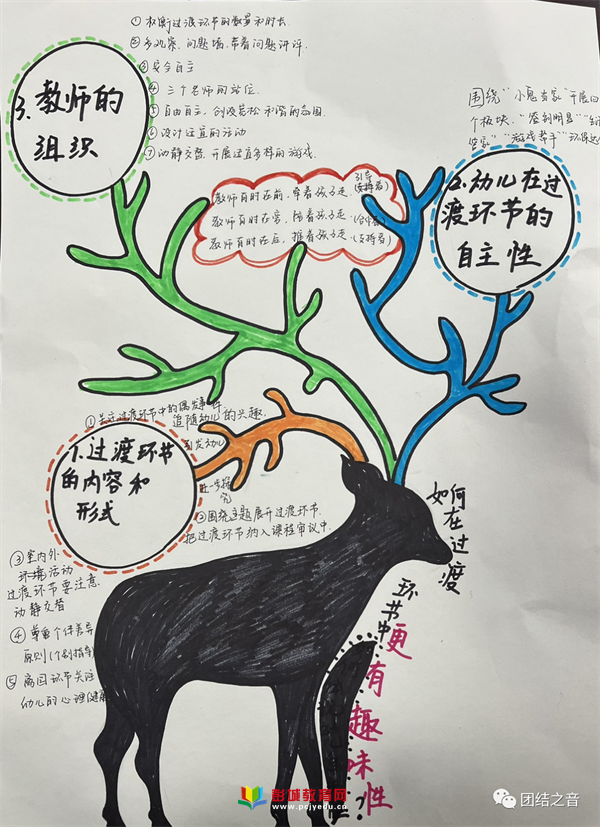 ① 权衡过渡环节的数量和时长
② 多观察、问题墙、带着问题讲评.
③ 安全自主
④ 三个老师的站位.
⑤ 自由自主，创设宽松和谐的氛围.
⑥ 设计适宜的活动
⑦ 动静交替，开展适宜多样的游戏.
3.教师的
组织
围绕"小鬼当家"开展四
个板块."签到明星"
管家""游戏帮手"
2.幼儿在过
渡环节的
自主性
教师有时在前，牵着孩子走.引导(支持者)
教师有时在旁，陪着孩子走.(合作者)
教师有时在后，推着孩子走.(支持者)
①关注过渡环节中的偶发事件
追随幼儿的兴趣.
引发幼儿
进一步探
究
1.过渡环节
的内容和
形式
②围绕主题展开过渡环节.
把过渡环节纳入课程审议中.
③室内外
环境活动
过渡环节要注意
动静交替
④尊重个体差异
原则(个别指导)
⑤离园环节关注
幼儿的心理健康
如何在过渡
环节中更有趣味性
彭城教育网
www.pcjyedu.cn
团结之音